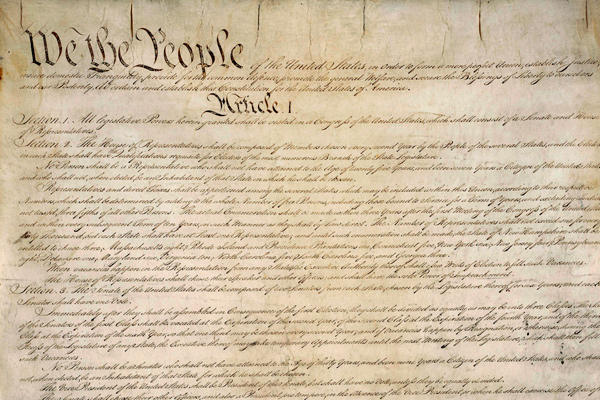 We the People of the United States, in Order to form a more perfect Union, establish Justice,
insure domestic Tranquility, provide for the common defence, promote the general Welfare, and secure the Blessings of Liberty to ourselves
and our Posterity, do ordain and establish this Constitution for the United States of America.
Article I.
Section. 1. All legislative Powers herein granted shall be vested in a Congress of the United States, which shall consist of a Senate and House
of Representatives.
Section. 2. The House of Representatives shall be composed of Members chosen every second Year by the People of the several States, and the Electors
in each State shall have the Qualifications requisite for Electors of the most numerous Branch of the State Legislature.
No Person shall be a Representative who shall not have attained to the Age of twenty five Years, and been seven Years a Citizen of the United States,
and who shall not, when elected, be an Inhabitant of that State in which he shall be chosen.
Representatives and direct Taxes shall be apportioned among the several States which may be included within this Union, according to their respective
Numbers, which shall be determined by adding to the whole Number of free Persons, including those bound to Service for a Term of Years, and excluding Indians
not taxed, three fifths of all other Persons. The actual Enumeration shall be made within three Years after the first Meeting of the Congress of the United States,
and within every subsequent Term of ten Years, in such Manner as they shall by Law direct. The Number of Representatives shall not exceed one for every
thirty Thousand, but each State shall have at Least one Representative; and until such enumeration shall be made, the State of New Hampshire shall be
entitled to chuse three, Massachusetts eight, Rhode Island and Providence Plantations one, Connecticut five, New York six, New Jersey four, Pennsylvania
eight, Delaware one, Maryland six, Virginia ten, North Carolina five, South Carolina five, and Georgia three.
When vacancies happen in the Representation from any State, the Executive Authority thereof shall issue Writs of Election to fill such Vacancies.
The House of Representatives shall chuse their Speaker and other Officers; and shall have the sole Power of Impeachment.
Section. 3. The Senate of the United States shall be composed of two Senators from each State, chosen by the Legislature thereof, for six Years; and each
Senator shall have one Vote.
Immediately after they shall be assembled in Consequence of the first Election, they shall be divided as equally as may be into three Classes. The Seats
of the Senators of the first Class shall be vacated at the Expiration of the second Year, of the second Class at the Expiration of the fourth Year, and of the third
Class at the Expiration of the sixth Year, so that one third may be chosen every second Year; and if Vacancies happen by Resignation, or otherwise, during the
Recess of the Legislature of any State, the Executive thereof may make temporary Appointments until the next Meeting of the Legislature, which shall then fill
such Vacancies.
No Person shall be a Senator who shall not have attained to the Age of thirty Years, and been nine Years a Citizen of the United States, and who shall
not, when elected, be an Inhabitant of that State for which he shall be chosen.
The Vice President of the United States shall be President of the Senate, but shall have no Vote, unless they be equally divided.
The Senate shall chuse their other Officers, and also a President pro tempore, in the Absence of the Vice President, or when he shall exercise the Office of